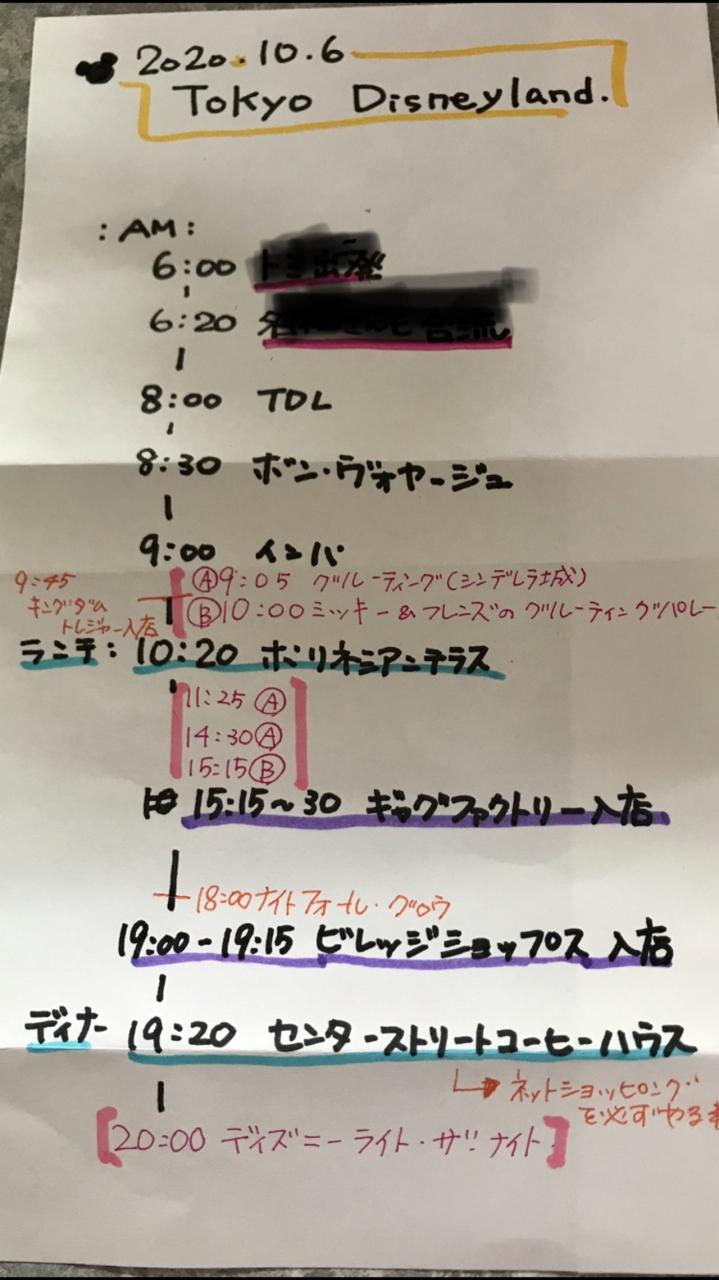 2020.10.6
Tokyo Disneyland.
:AM:
6:00
6:20
8:00 TDL
8:30 ボン・ヴォヤージュ
9:00 インパ
Ⓐ9:05 グルーティング(シンデレラ城)
9:45
キングダム
トレジャー入店
Ⓑ10:00 ミッキー&フレンズのグルーティングパレー
ランチ: 10:20 ポリネシアンテラス
11:25 Ⓐ
14:30 Ⓐ
15:15 Ⓑ
15:15~30 ギャグファクトリー入店
18:00 ナイトフォール・グロウ
19:00-19:15 ビレッジショップス 入店
ディナー 19:20 センターストリートコーヒーハウス
ネットショッピング
を必ずやる
20:00 ディズニーライト・ザ・ナイト